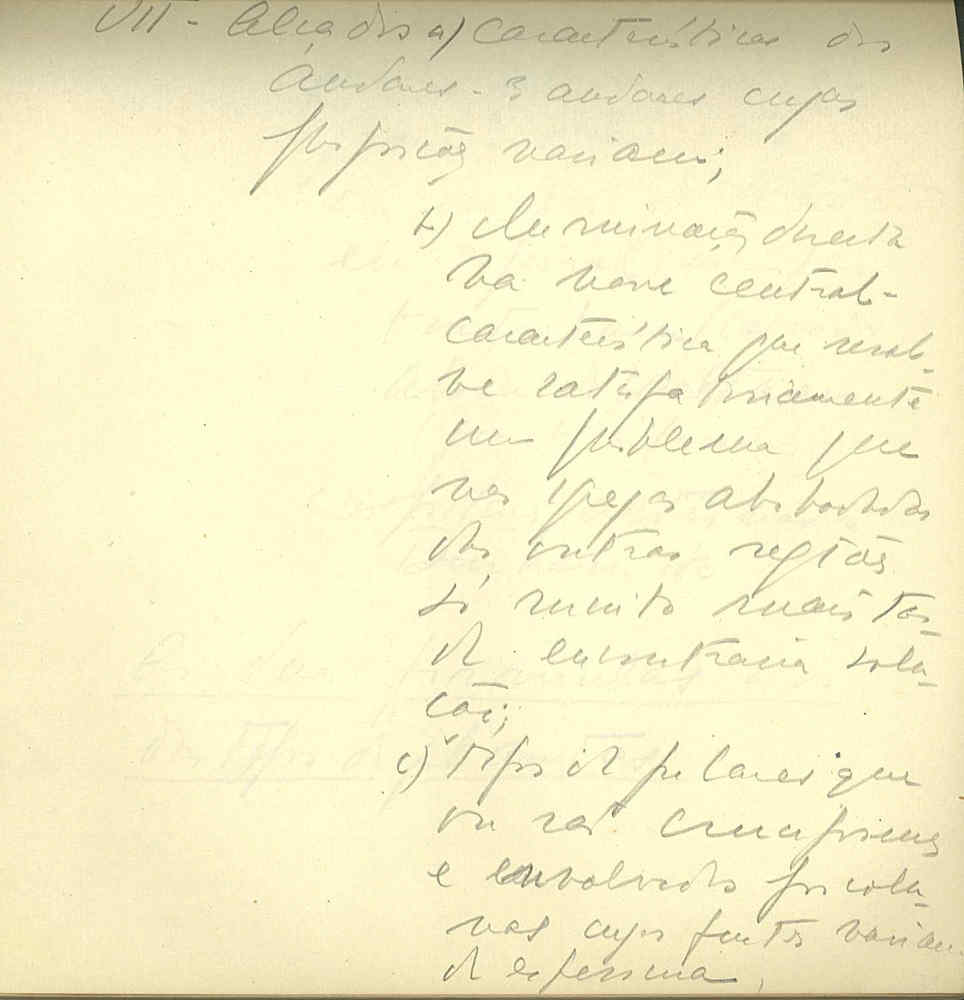 VII - Alçados a) Características dos
andares - 3 andares cujas
proporções variam;
b) Iluminação directa
na nave central -
característica que resol-
ve satisfatoriamente
um problema que
nas igrejas abobadadas
das outras regiões
só muito mais tar-
de encontraria solu-
ção;
c) Tipos de pilares que
ou são cruciformes
e envolvidos por colu-
nas cujos fustes variam
de espessura,